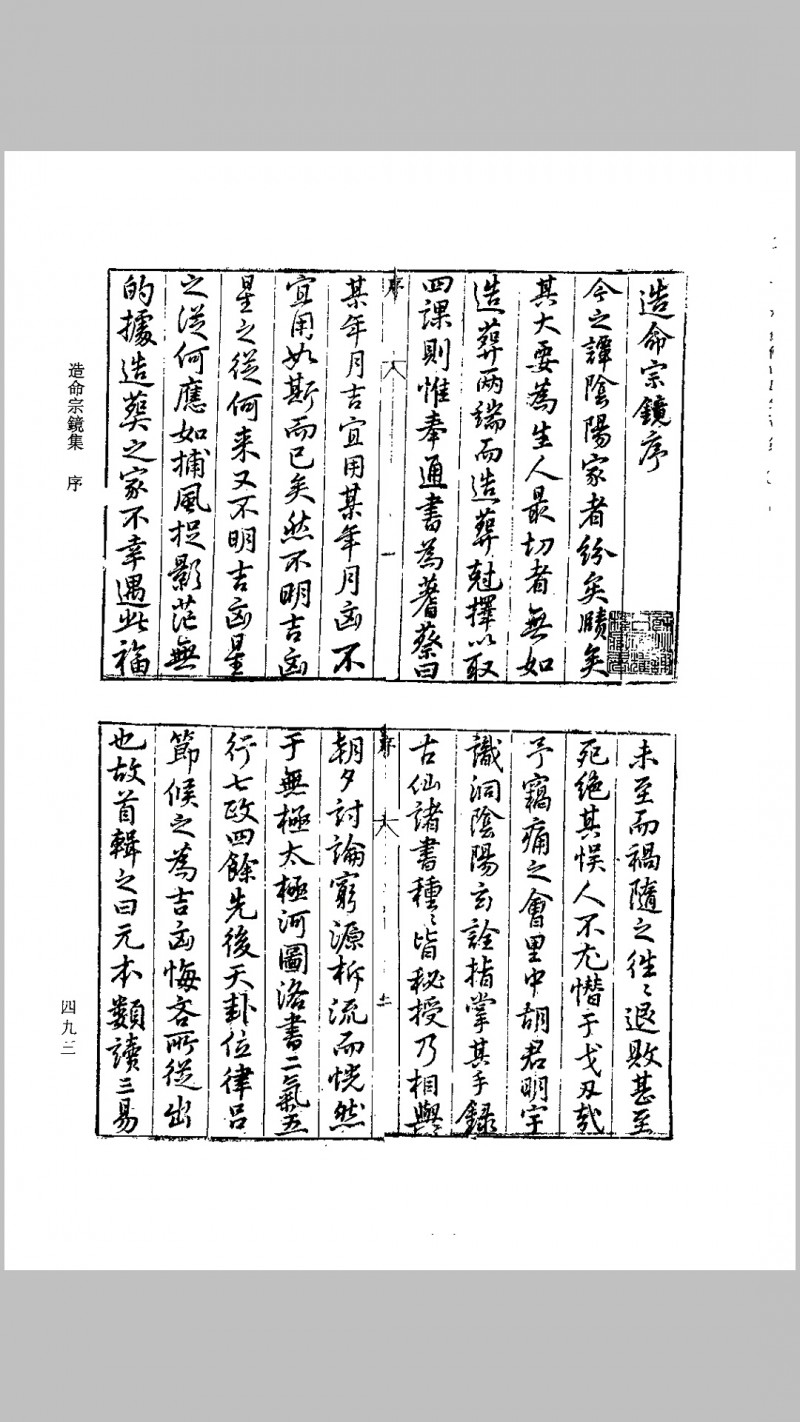 造命宗鏡序
今之譚陰陽家者紛矣賾矣
其大要為生人最切者無如
造葬兩端而造葬尅擇以取
四課則惟奉通書為蓍蔡曰
序
一
某年月吉宜用某年月凶不
宜用如斯而已矣然不明吉凶
星之從何来又不明吉凶星
之從何應如捕風捉影茫無
的據造葬之家不幸遇此福
未至而禍隨之往〻退敗甚至
死絕其悞人不尤憯于戈刃哉
予竊痛之會里中胡君明宇
識洞陰陽玄詮指掌其手錄
古仙諸書種〻皆秘授乃相與
序
朝夕討論窮源析流而恍然
于無極太極河圖洛書二氣五
行七政四餘先後天卦位律呂
節候之為吉凶悔吝所從出
也故首輯之曰元本類讀三易
造命宗鏡集 序
四九三